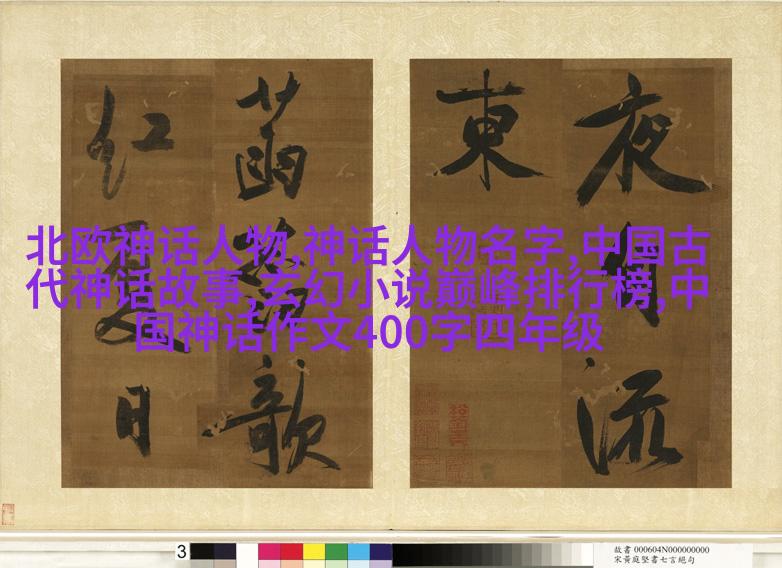 夜流
東
歌
紅日
北欧神话人物,神话人物名字,中国古
代神话故事,玄幻小说巅峰排行榜,中
国神话作文400字四年级
3
故書 000604N000000000
宋黃庭堅書七言絕句